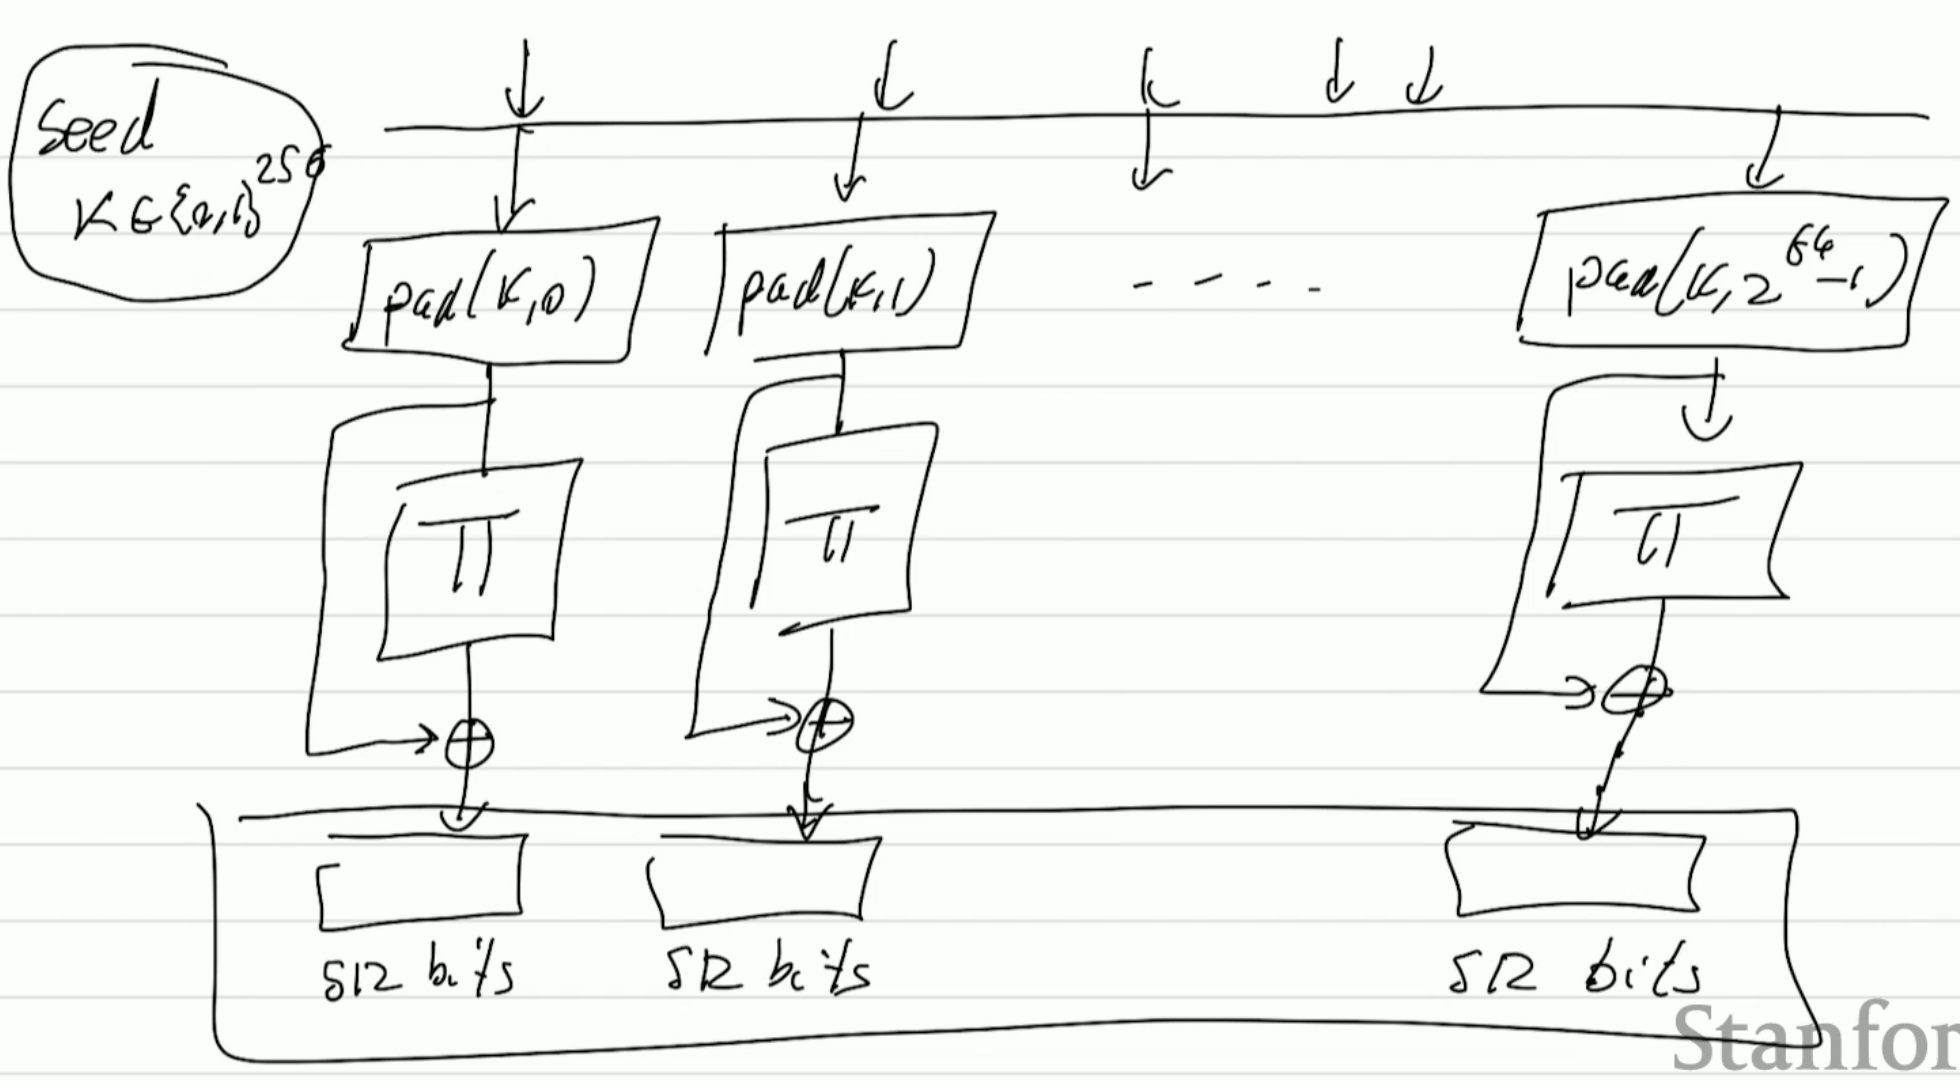 Seed
K∈{0,1}^256
pad(K,0)
pad(K,1)
- - - -
pad(K,2^64-1)
π
π
π
⊕
⊕
⊕
512 bits
512 bits
512 bits
Stanfor